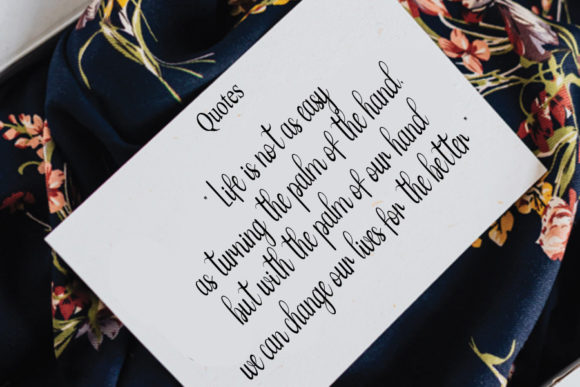 Quotes
" Life is not as easy
as turning the palm of the hand,
but with the palm of our hand
we can change our lives for the better "